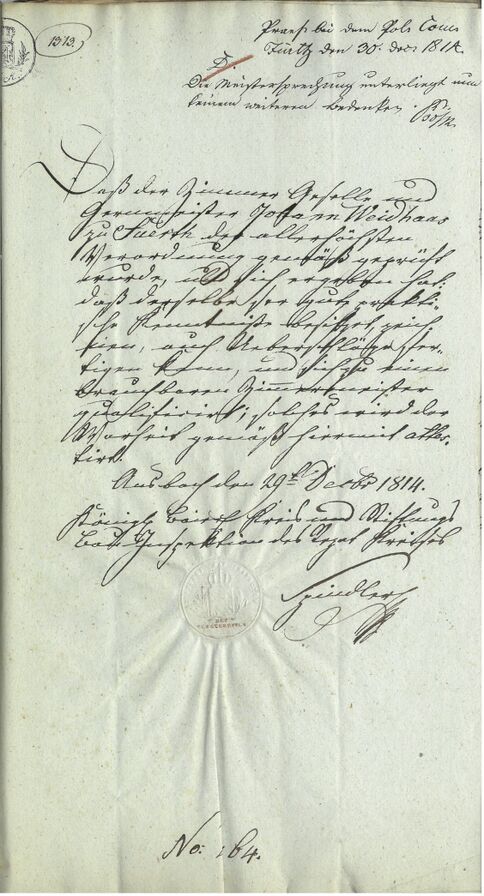 1313.
Praes. bei dem Pols Com
Fürth den 30. dec 1814
D.
Die Meistersprechung unterliegt nun
keinem weiteren Bedenken.
Daß der Zimmer Geselle und
Germeister Johann Weidhaas
zu Fuerth der allerhöchsten
Verordnung gemäß geprüft
wurde, und sich ergeben hat:
daß derselbe ser gute prakti-
sche Kenntniße besitzet, zeich-
nen, auch Ueberschläge fer-
tigen kann, und sich zu einem
brauchbaren Zimmermeister
qualifiziert; solches wird der
Warheit gemäß hiermit attes-
tirt.
Ansbach den 29ten Decbr 1814.
Königl Baiersch Kreis und Stiftungs
Bau Inspektion des Rezat Kreises
Spindler
No: 164.